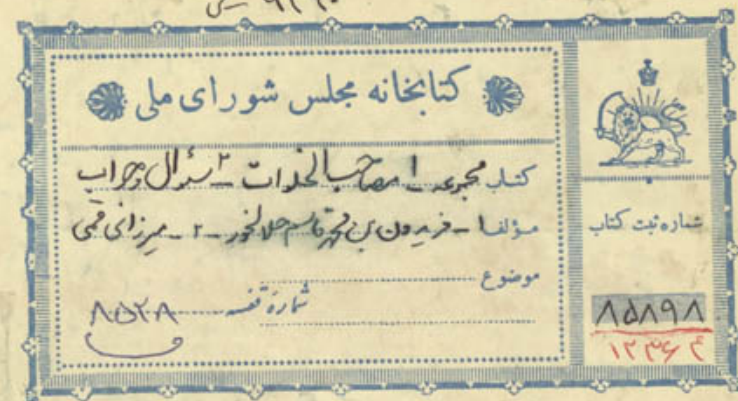 کتابخانه مجلس شورای ملی
کتاب مجموعه ۱ مصاحب الخلوات ـ ۲ سئوال و جواب
مؤلف ۱ ـ فریدون بن محمد قاسم ـ ۲ ـ میرزای قمی
موضوع
شماره قفسه ۸۵۲۸
شماره ثبت کتاب
۸۵۸۹۸